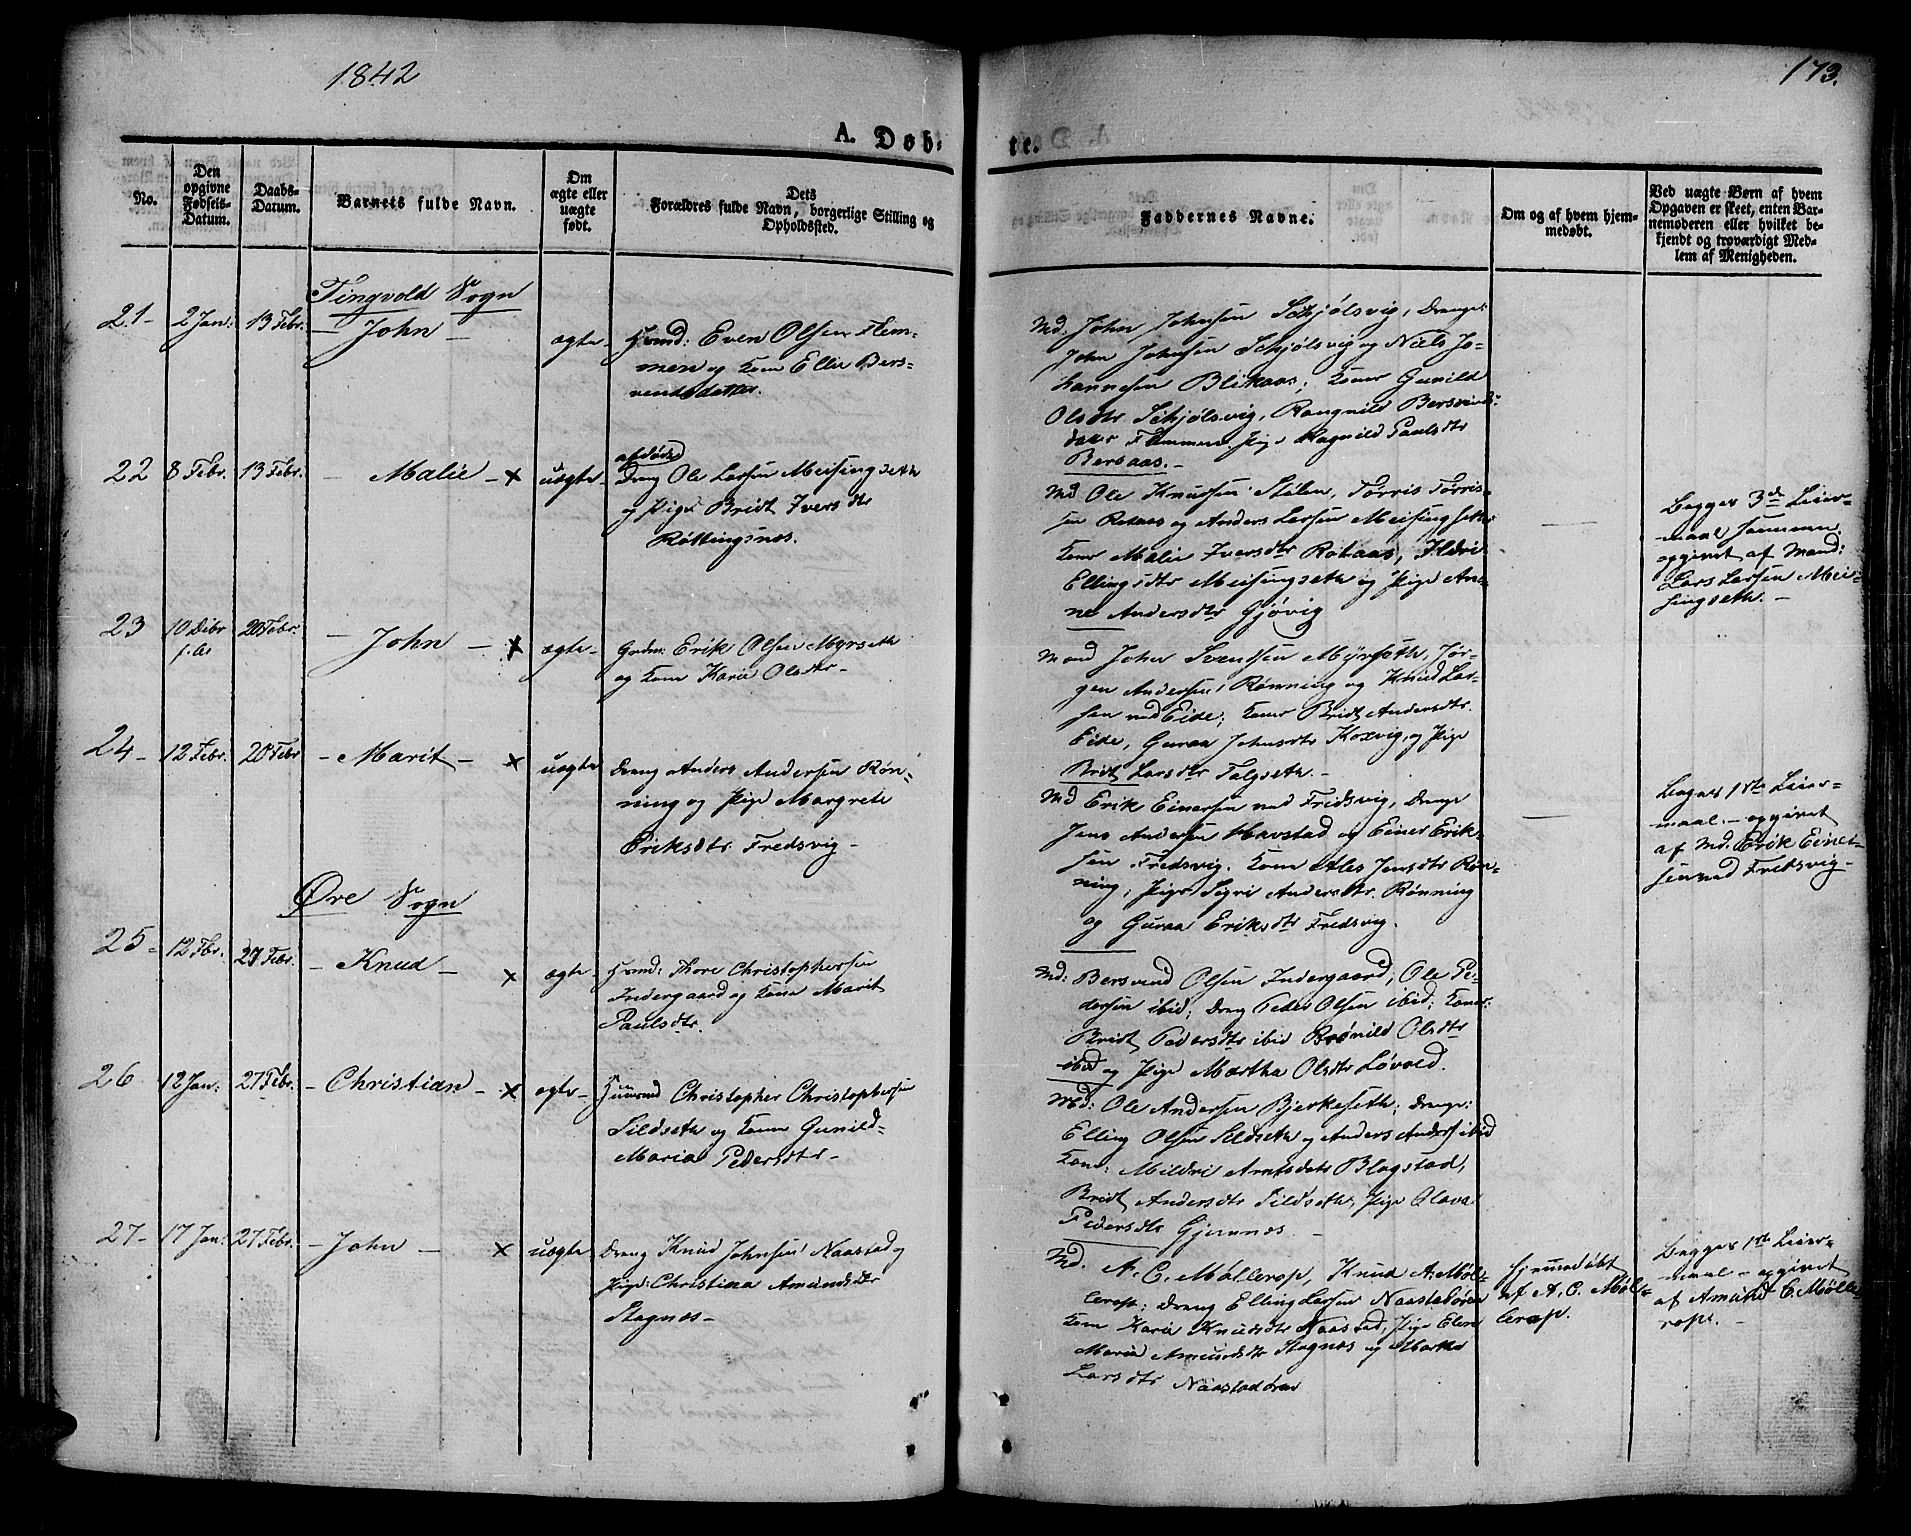 1842
173.
A. Døb-
te.
No.
Den
opgivne
Fødsels-
Datum.
Daabs-
Datum.
Barnets fulde Navn.
Om
ægte eller
uægte
født.
Dets
Forældres fulde Navn, borgerlige Stilling og
Opholdssted.
Faddernes Navne.
Om og af hvem hjem-
medøbt.
Ved uægte Børn af hvem
Opgaven er skeet, enten Bar-
nemoderen eller hvilket be-
kjendt og troværdigt Med-
lem af Menigheden.
Tingvold Sogn
21- 2 Jan: 13 Febr. - John -
ægte-
Huusmd: Even Olsen Flem-
men og Kone Ellie Bers-
ventsdatter.
Md: John Johnsen Schjølsvig, Drenge:
John Johnsen Schjølsvig og Niels Jo-
hannesen Blikaas; Koner Gunild
Olsdtr Schjølsvig, Rangnild Bersvends-
datter Flemmen, Pige Ragnild Paulsdtr
Bersaas. -
22 8 Febr. 13 Febr. - Malie - x uægte-
afdøde
Dreng Ole Larsen Meisingseth
og Pige Bridt Iversdtr
Røttingsnæs.
Md Ole Knudsen Stølen, Tørris Tørris-
sen Rotaas og Anders Larsen Meisingseth
Koner Malie Iversdtr Rotaas, Ildri
Ellingsdtr Meisingseth og Pige An-
ne Andersdtr Gjøvig
Begges 3de Leier-
maal sammen,
opgivet af Mand:
Lars Larsen Mei-
singseth. -
23 10 Debr 20 Febr. - John - x ægte-
f. A.
Grdm: Erik Olsen Myrseth
og Kone Kari Olsdtr-
Mand John Svendsen Myrseth, Jør-
gen Andersen Rønning og Knud Lar-
sen ved Eide; Koner Bridt Andersdtr
Eide, Guraa Johnsdtr Koxvig, og Pige
Bridt Larsdtr Talgseth. -
24- 12 Febr. 20 Febr - Marit - x uægte
Dreng Anders Andersen Røn-
ning og Pige Margrete
Eriksdtr Fredsvig-
Md Erik Einersen ved Fredsvig, Drenge
Jens Andersen Havstad og Einer Erik-
sen Fredsvig. Kone Ales Jensdtr Røn-
ning, Pige Sigri Andersdtr Rønning
og Guraa Eriksdtr Fredsvig.
Begges 1ste Leier-
maal. - opgivet
af Md. Erik Einer-
sen ved Fredsvig-
Øre Sogn
25- 12 Fbr. 27 Febr. - Knud - x ægte-
Huusmd: Thore Christophersen
Indergaard og Kone Marit
Paulsdtr.
Md: Bersvend Olsen Indergaard, Ole Pe-
dersen ibid; Dreng Peder Olsen ibid; Koner:
Bridt Pedersdtr ibid Brønild Olsdtr
ibid og Pige Martha Olsdtr Løvold.
26 12 Jan: 27 Febr. - Christian - x ægte-
Huusmd Christopher Christophersen
Sildseth og Kone Gunild-
Maria Pedersdtr-
Md: Ole Andersen Bjerkeseth; Drenge:
Elling Olsen Sildseth og Anders Anders. ibid
Kone: Mildri Arntsdatr Blagstad,
Bridt Andersdtr Sildseth, Pige Olava
Pedersdtr Gjemnæs -
27- 17 Jan: 27 Febr. - John - x uægte
Dreng Knud Johnsen Naastad og
Pige: Christina Amundsdtr
Stagnæs-
Md. A. C. Møllerop, Knud A: Møl-
lerop: Dreng Elling Larsen Naastadøren
Kone Kari Knudsdtr Naastad, Pige Elen
Maria Amundsdtr Stagnæs og Martha
Larsdtr Naastadøren
hjemmedøbt
af A. C. Møl-
lerop.
Begges 1ste Leier-
maal - opgivet
af Amund C. Mølle-
rop. -